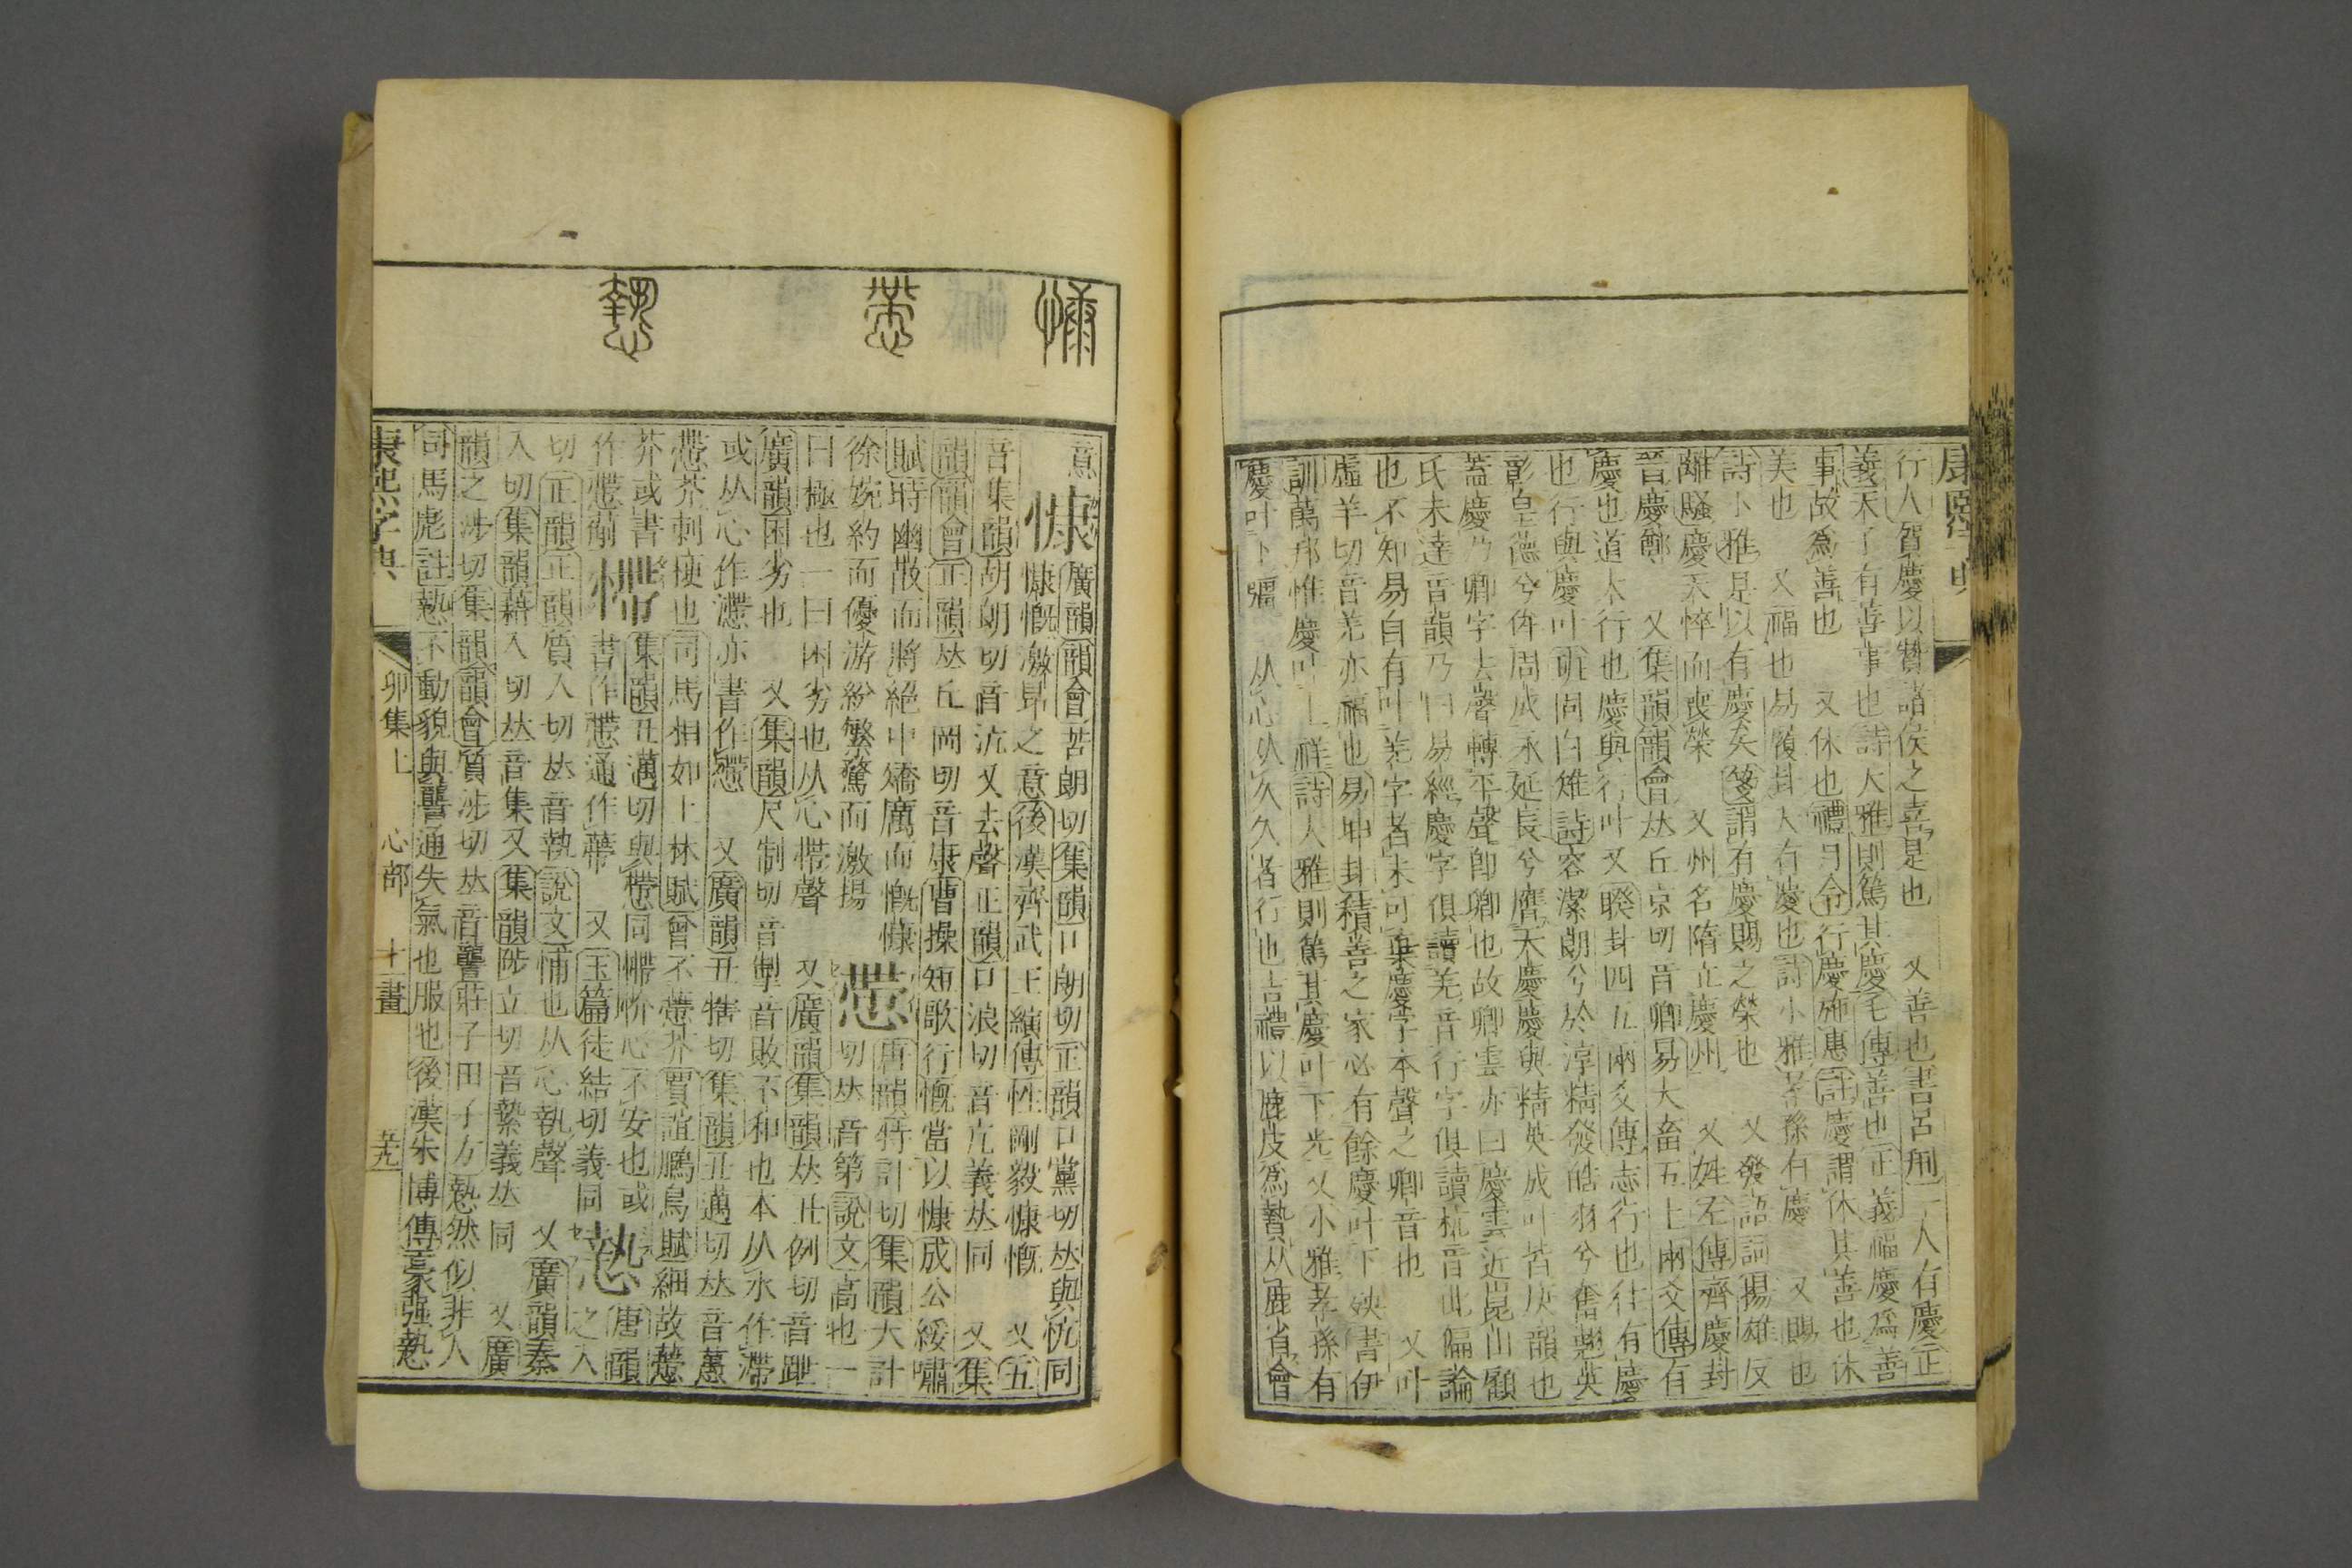 康熙字典
行人賀慶以贊諸侯之喜是也 又善也書呂刑一人有慶正
義天子有善事也詩大雅則篤其慶毛傳善也正義福慶爲善
事故爲善也 又休也禮月令行慶施惠註慶謂休其善也休
美也 又福也易頤卦大有慶也詩小雅孝孫有慶 又賜也
詩小雅是以有慶矣箋謂有慶賜之榮也 又發語詞揚雄反
離騷慶夭悴而喪榮 又州名隋立慶州 又姓左傳齊慶封
晉慶鄭 又集韻韻會𠀤丘京切音卿易大畜五上兩爻傳有
慶也道大行也慶與行叶又睽卦四五兩爻傳志行也往有慶
也行與慶叶班固白雉詩容潔朗兮於淳精發皓羽兮奮翹英
彰皇德兮侔周成永延長兮膺天慶慶與精英成叶苦庚韻也
蓋慶乃卿字去聲轉平聲卽卿也故卿雲亦曰慶雲近崑山顧
氏未達音韻乃曰易經慶字俱讀羌音行字俱讀杭音此偏論
也不知易自有叶羌字者未可槩慶字本聲之卿音也 又叶
虛羊切音羌亦福也易坤卦積善之家必有餘慶叶下殃書伊
訓萬邦惟慶叶上祥詩大雅則篤其慶叶下光又小雅孝孫有
慶叶下疆 从心从夂夂者行也吉禮以鹿皮爲贄从鹿省會
意 慷 廣韻韻會苦朗切集韻口朗切正韻口黨切𠀤與忼同
慷慨激昂之意後漢齊武王縯傳性剛毅慷慨 又五
音集韻胡朗切音沆又去聲正韻口浪切音亢義𠀤同 又集
韻韻會正韻𠀤丘岡切音康曹操短歌行慨當以慷成公綏嘯
賦時幽散而將絕中矯厲而慨慷 唐韻特計切集韻大計
徐婉約而優游紛繁騖而激揚 懘 切𠀤音第說文高也一
曰極也一曰困劣也从心帶聲 又廣韻集韻𠀤丑例切音跇
廣韻困劣也 又集韻尺制切音掣音敗不和也本从水作滯
或从心作懘亦書作㦅 又廣韻丑犗切集韻丑邁切𠀤音蠆
㦅芥刺鯁也司馬相如上林賦曾不㦅芥賈誼鵩鳥賦細故㦅
芥或書 㿃 集韻丑邁切與㦅同㿃忦心不安也或
作㦅薊 書作㦅通作蔕 又玉篇徒結切義同 慹 唐韻
之入
切正韻正韻質入切𠀤音執說文悑也从心執聲 又廣韻秦
入切集韻藉入切𠀤音集又集韻陟立切音縶義𠀤同 又廣
韻之涉切集韻韻會質涉切𠀤音讋莊子田子方慹然似非人
司馬彪註慹不動貌與讋通失氣也服也後漢朱博傳豪强慹
康熙字典 卯集上 心部 十一畫 芜